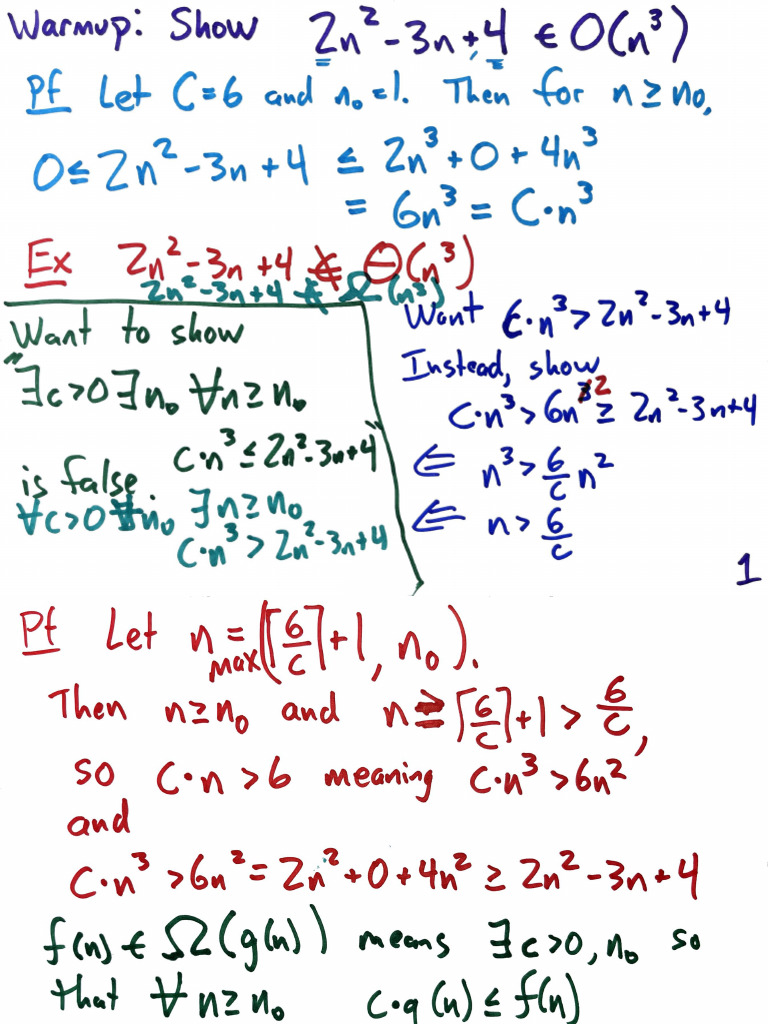 Warmup: Show 2n² - 3n + 4 ∈ O(n³)
Pf Let C = 6 and n₀ = 1. Then for n ≥ n₀,
0 ≤ 2n² - 3n + 4 ≤ 2n³ + 0 + 4n³
= 6n³ = C·n³
Ex 2n² - 3n + 4 ∉ Θ(n³)
2n² - 3n + 4 ∉ Ω(n³)
Want to show
"∃c>0 ∃n₀ ∀n ≥ n₀
c·n³ ≤ 2n² - 3n + 4"
is false.
∀c>0 ∀n₀ ∃n ≥ n₀
c·n³ > 2n² - 3n + 4
Want c·n³ > 2n² - 3n + 4
Instead, show
c·n³ > 6n² ≥ 2n² - 3n + 4
⇐ n³ > 6/c n²
⇐ n > 6/c
1
Pf Let n = max(⌈6/c⌉ + 1, n₀).
Then n ≥ n₀ and n ≥ ⌈6/c⌉ + 1 > 6/c,
so c·n > 6 meaning c·n³ > 6n²
and
c·n³ > 6n² = 2n² + 0 + 4n² ≥ 2n² - 3n + 4
f(n) ∈ Ω(g(n)) means ∃c>0, n₀ so
that ∀n ≥ n₀ c·g(n) ≤ f(n)